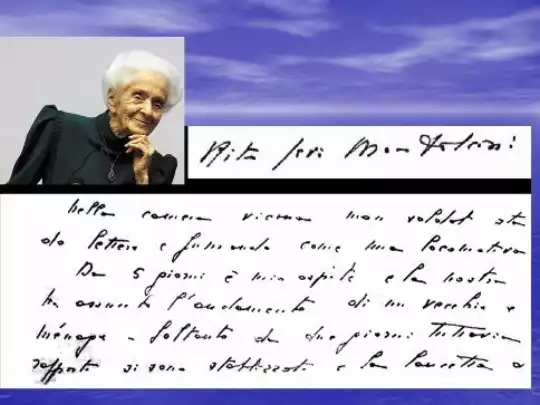 Rita Levi Montalcini
Nella camera vicina
da letto e fumando come una locomotiva
Da 5 giorni è mio ospite e la nostra
ha assunto l'andamento di un vecchio e
ménage - Soltanto da due giorni tuttavia
rapporti si sono stabilizzati e la